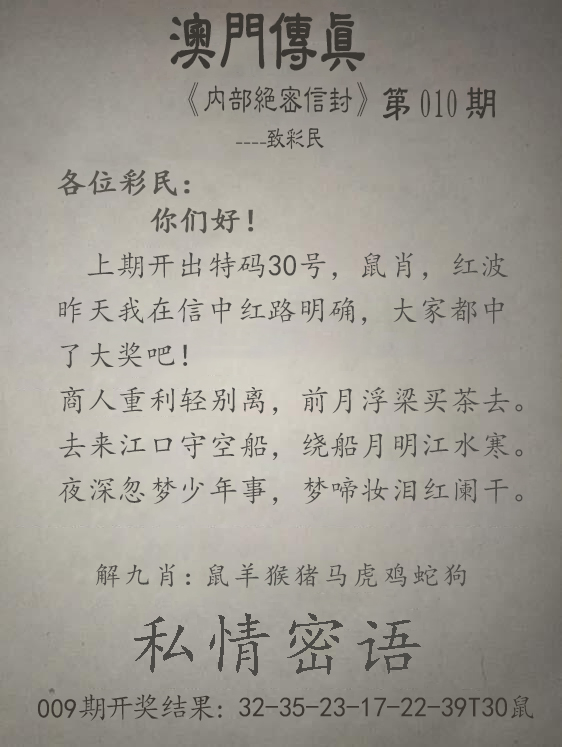 澳門傳眞
《内部絕密信封》第010期
----致彩民
各位彩民：
你们好！
上期开出特码30号，鼠肖，红波
昨天我在信中红路明确，大家都中
了大奖吧！
商人重利轻别离，前月浮梁买茶去。
去来江口守空船，绕船月明江水寒。
夜深忽梦少年事，梦啼妆泪红阑干。
解九肖：鼠羊猴猪马虎鸡蛇狗
私情密语
009期开奖结果：32-35-23-17-22-39T30鼠